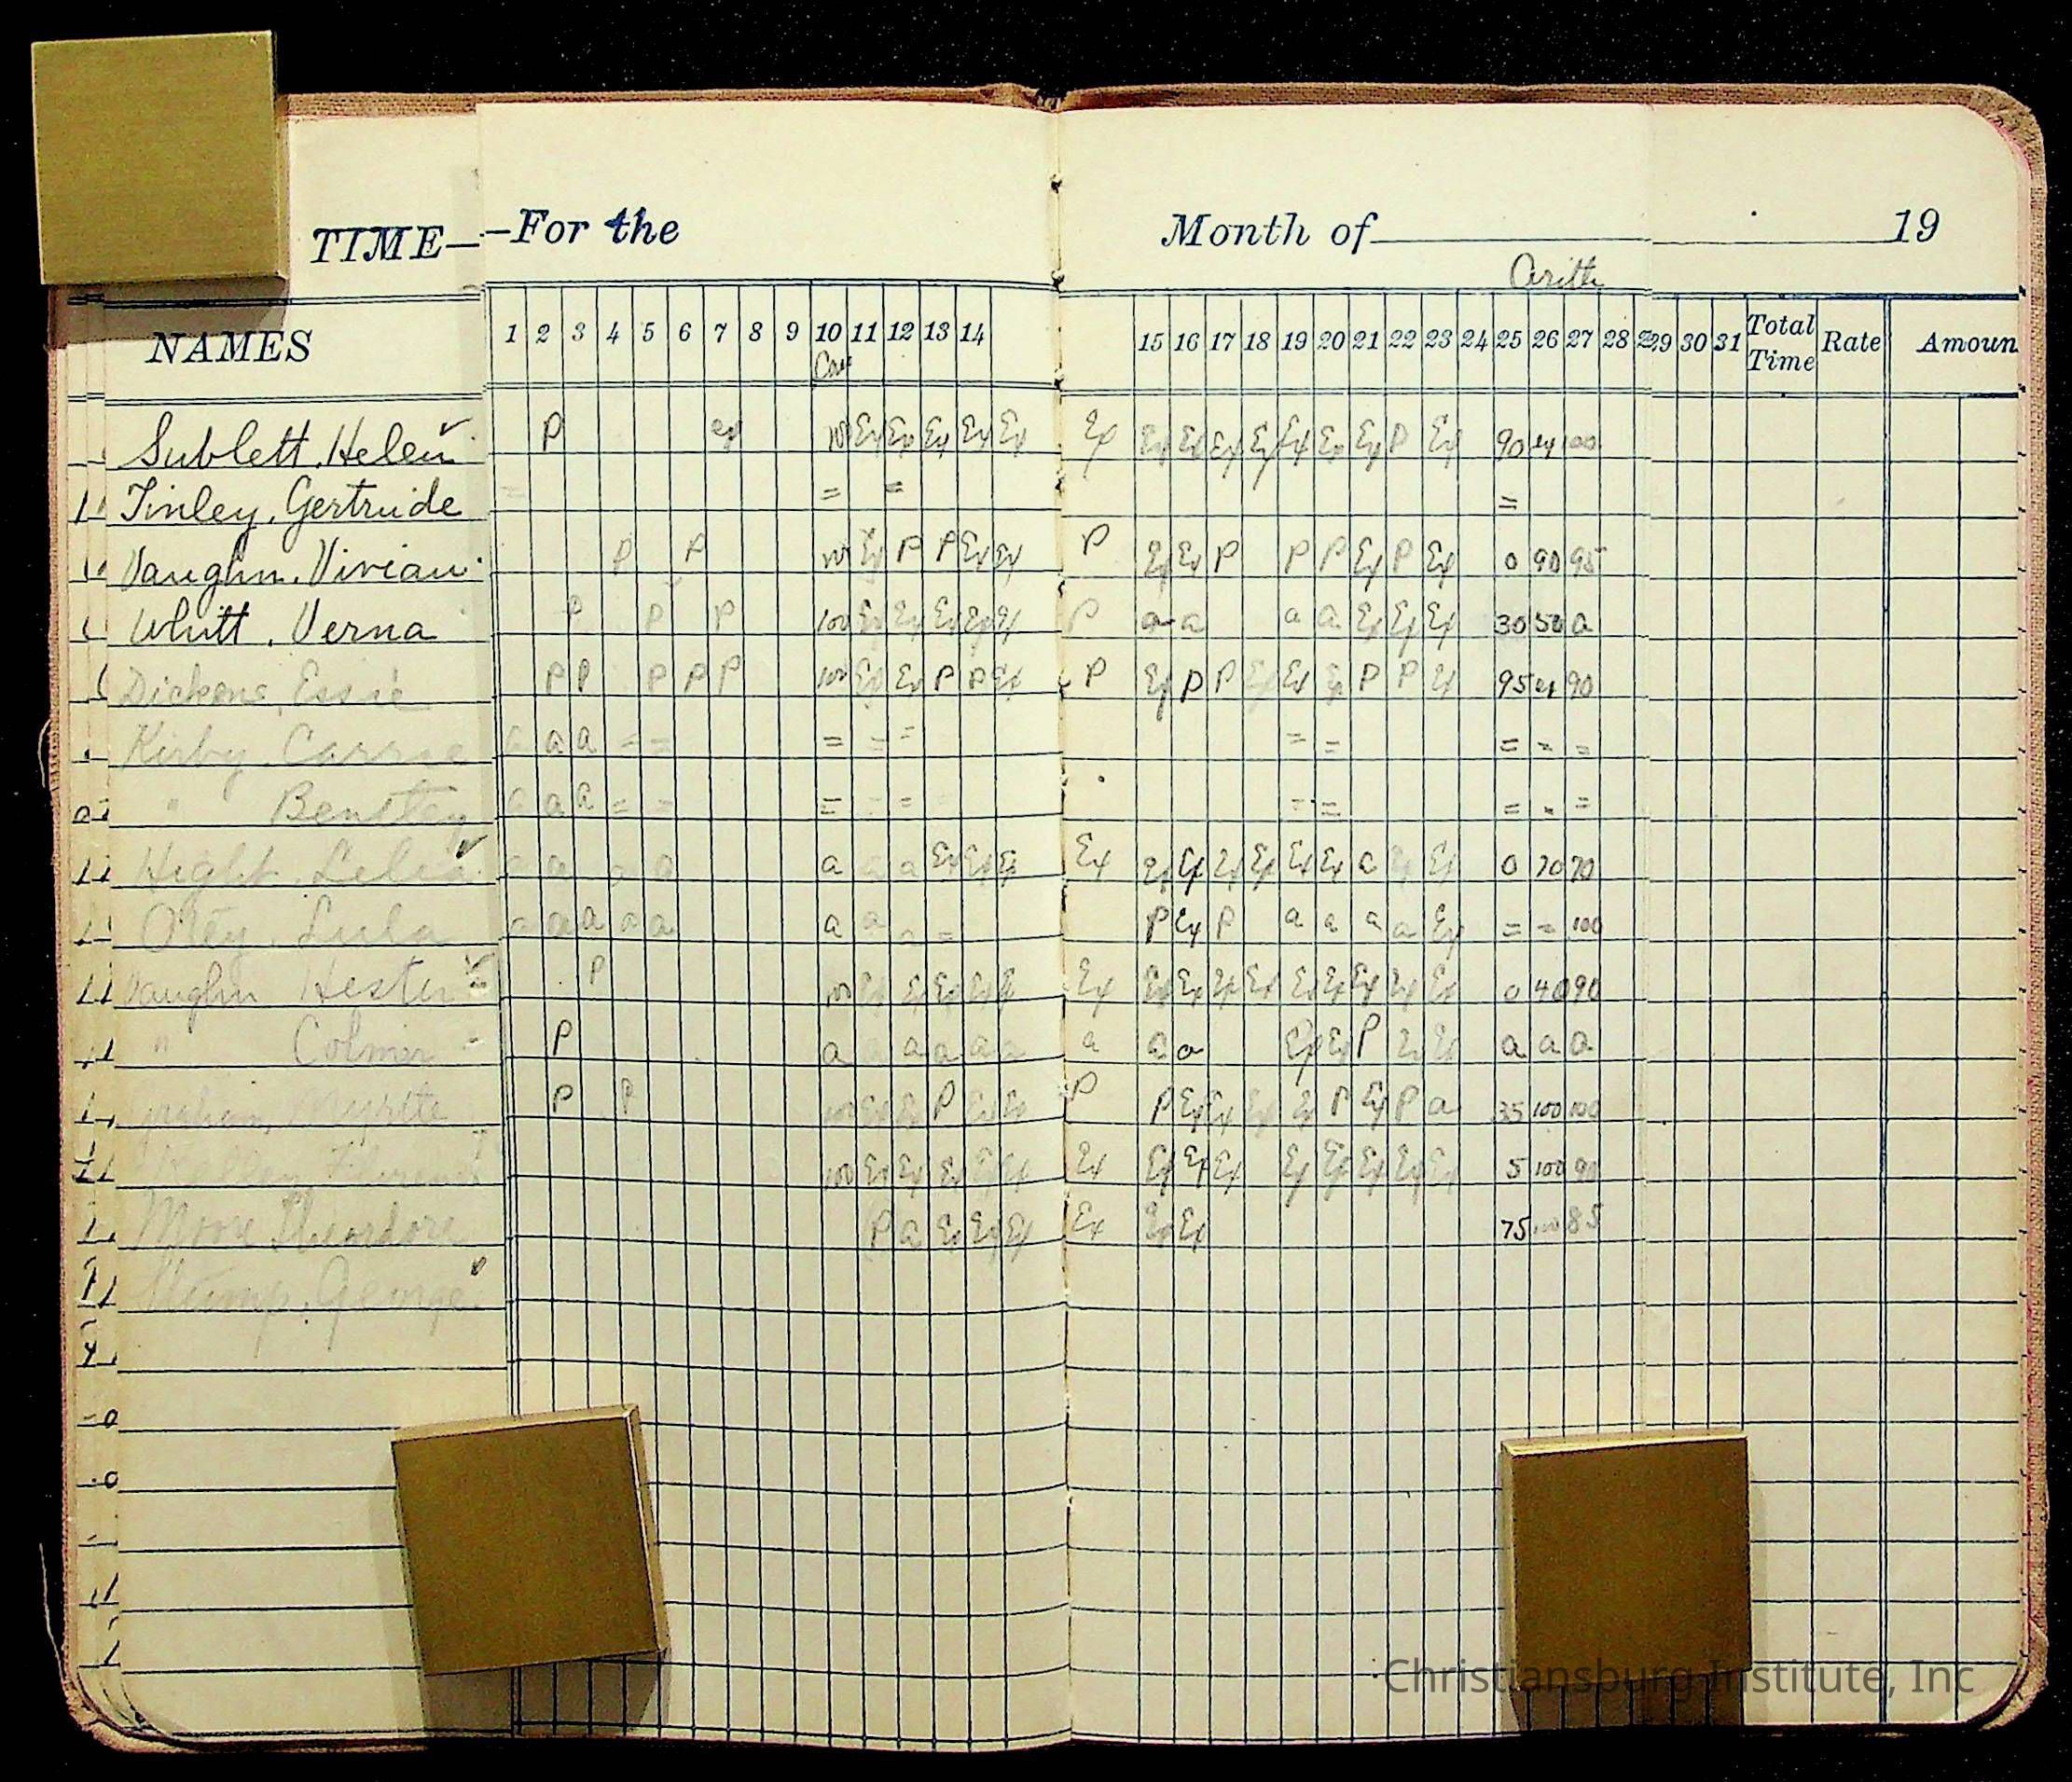 TIME— —For the Month of 19
Arith
NAMES 1 2 3 4 5 6 7 8 9 10 11 12 13 14 15 16 17 18 19 20 21 22 23 24 25 26 27 28 29 30 31 Total Time Rate Amoun
Sublett, Helen P ex 100 Ex Ex Ex Ex Ex Ex Ex Ex Ex Ex Ex Ex Ex P Ex 90 ex 100
Tinley, Gertrude = = = =
Vaughn, Vivian P P 100 Ex P P Ex Ex P Ex Ex P P P Ex P Ex 0 90 95
Whitt, Verna P P P 100 Ex Ex Ex Ex Ex P a a a a Ex Ex Ex 30 50 a
Dickens, Essie P P P P P 100 Ex Ex P P Ex P Ex P P Ex Ex Ex P P Ex 95 ex 90
Kirby, Carrie a a a = = = = = = = = = =
" Bentley a a a = = = = = = = = = =
Hight, Lelia a a a a a a a Ex Ex Ex Ex Ex Ex Ex Ex Ex Ex a Ex Ex 0 70 70
Otey, Lula a a a a a a a = = P Ex P a a a a Ex = = 100
Vaughn Hester P 100 Ex Ex Ex Ex Ex Ex Ex Ex Ex Ex Ex Ex Ex Ex Ex 0 40 90
" Colmer P a a a a a a a a a Ex Ex P Ex Ex a a a
Myrtle P P 100 Ex Ex P Ex Ex P P Ex Ex Ex Ex P Ex P a 35 100 100
100 Ex Ex Ex Ex Ex Ex Ex Ex Ex Ex Ex Ex Ex Ex 5 100 90
Moore Theordore P a Ex Ex Ex Ex Ex Ex 75 100 85
Stump, George
Christiansburg Institute, Inc